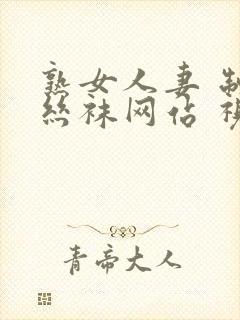 熟女人妻 制
丝袜网站 视
青帝大人